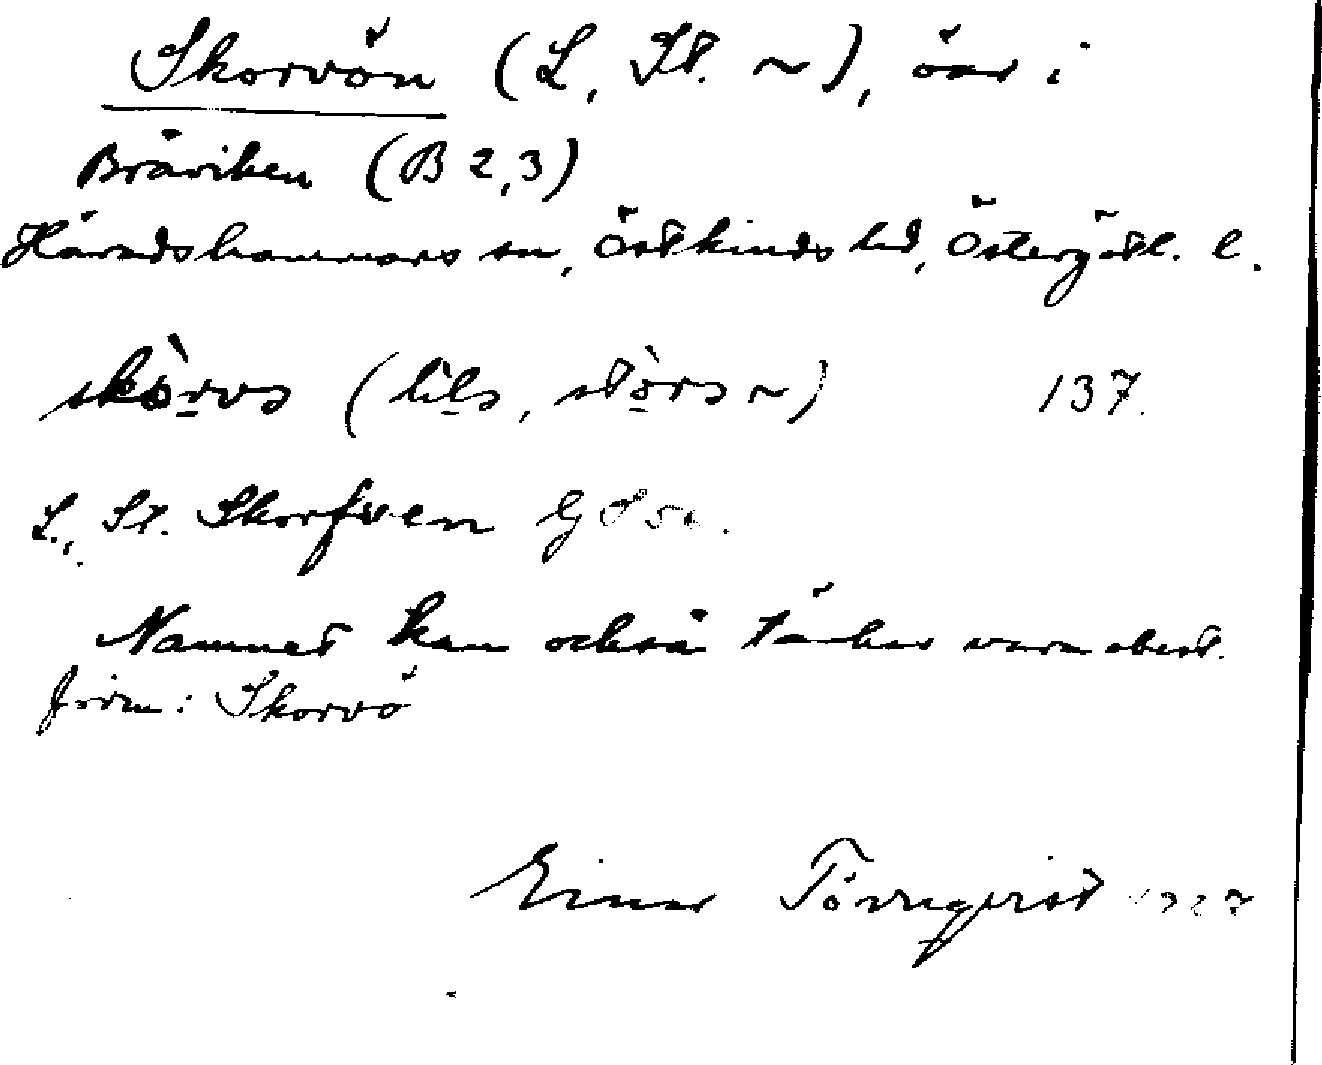 Skorvön (L, St. ~), öar i
Bråviken (B 2,3)
Häradshammars sn, Östkinds hd, Östergötl. l.
skò̱rvs (li̱ls, stò̱rs ~) 137.
L., St. Skorfven
Namnet kan också tänkas vara obest.
form: Skorvö
Einar Törnqvist 1927